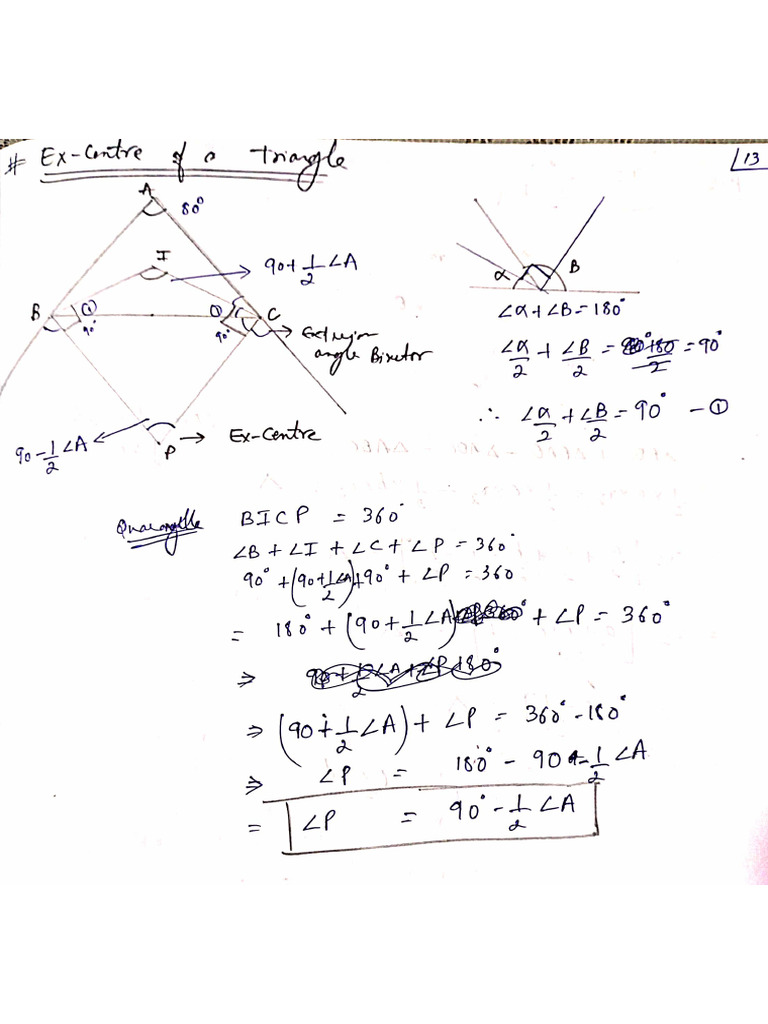 # Ex-Centre of a triangle
13
A
80°
I
90+1/2 ∠A
B
①
90°
①
90°
C
Exterior angle Bisector
90-1/2 ∠A
P
Ex-Centre
α
B
∠α+∠B=180°
∠α/2 + ∠B/2 = 180/2 = 90°
∴ ∠α/2 + ∠B/2 = 90° - ①
BICP = 360°
∠B + ∠I + ∠C + ∠P = 360°
90° + (90+1/2 ∠A) + 90° + ∠P = 360
= 180° + (90+1/2 ∠A) + ∠P = 360°
⇒
⇒ (90+1/2 ∠A) + ∠P = 360° - 180°
⇒ ∠P = 180° - 90 - 1/2 ∠A
= ∠P = 90° - 1/2 ∠A